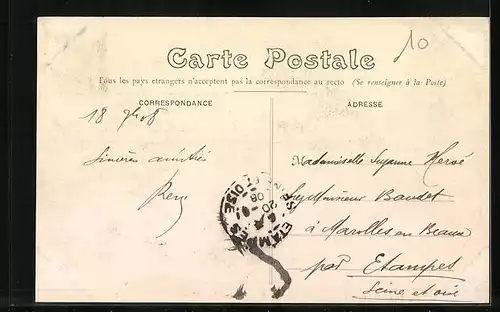 10
Carte Postale
Tous les pays etrangers n'acceptent pas la correspondance au recto (Se renseigner à la Poste)
CORRESPONDANCE
ADRESSE
18
Sincères amitiés
Mademoiselle Suzanne Hervé
Monsieur Baudet
à Marolles en Beauce
par Etampes
Seine et oise
ETAMPES
20
08
OISE